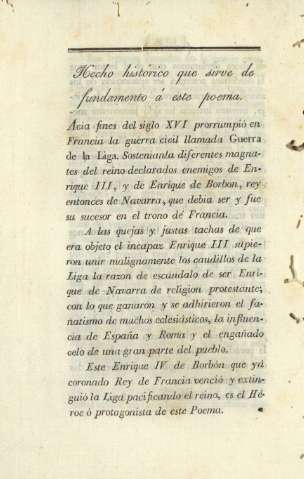 Hecho histórico que sirve de
fundamento á este poema.
Acia fines del siglo XVI prorrumpió en
Francia la guerra civil llamada Guerra
de la Liga. Sostenianla diferentes magna-
tes del reino declarados enemigos de En-
rique III, y de Enrique de Borbon, rey
entonces de Navarra, que debia ser y fue
su sucesor en el trono de Francia.
A las quejas y justas tachas de que
era objeto el incapaz Enrique III supie-
ron unir malignamente los caudillos de la
Liga la razon de escándalo de ser Enri-
que de Navarra de religion protestante,
con lo que ganaron y se adhirieron el fa-
natismo de muchos eclesiásticos, la influen-
cia de España y Roma y el engañado
celo de una gran parte del pueblo.
Este Enrique IV de Borbón que yá
coronado Rey de Francia venció y extin-
guió la Liga pacificando el reino, es el Hé-
roe ó protagonista de este Poema.